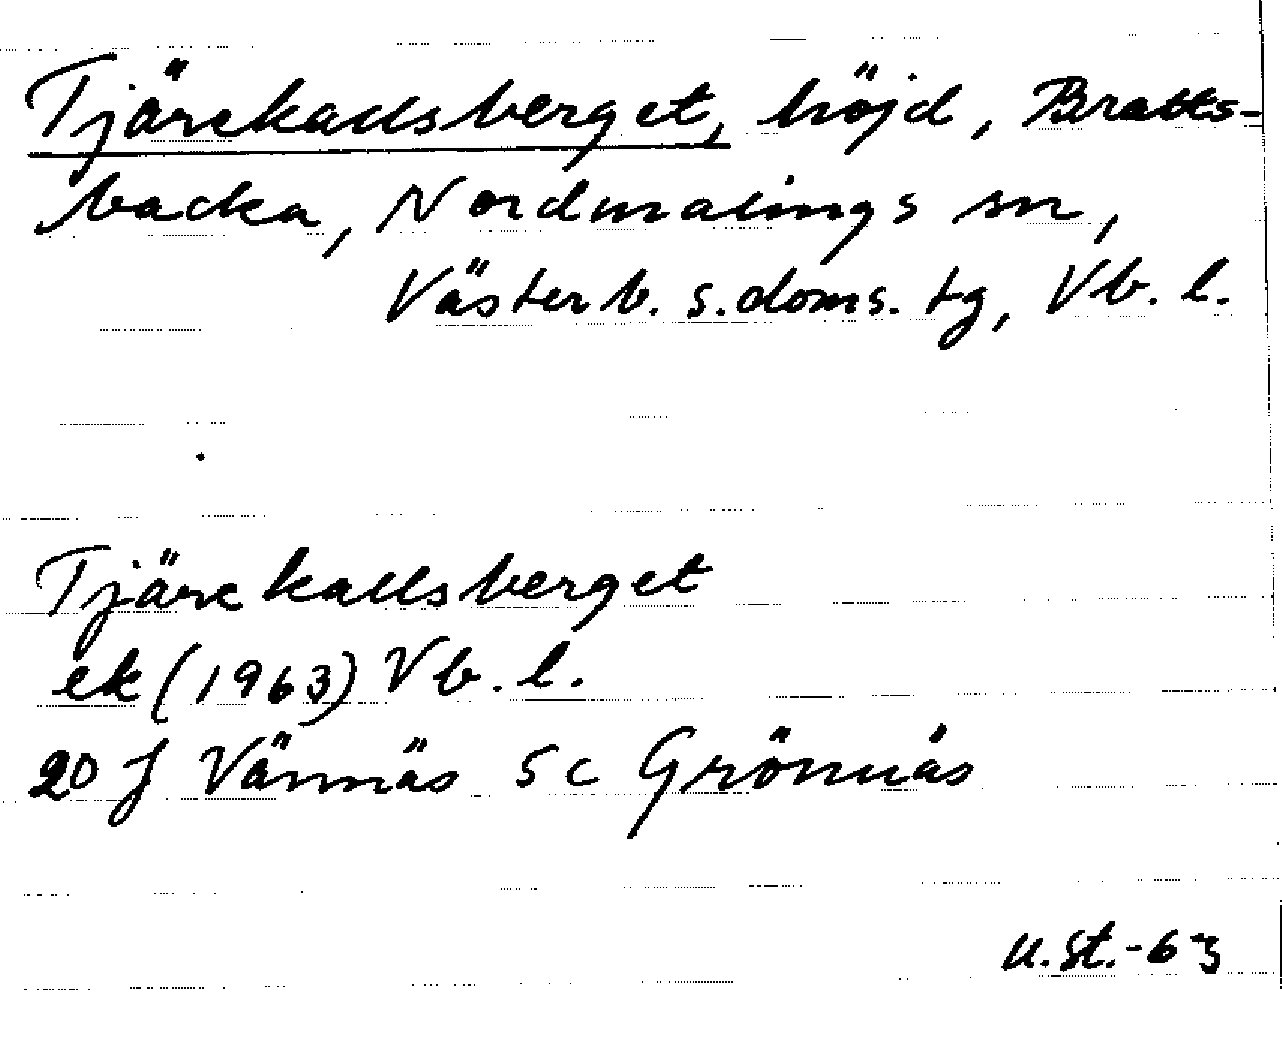 Tjärekallsberget, höjd, Bratts-
backa, Nordmalings sn,
Västerb. s. doms. tg, Vb. l.
Tjärekallsberget
ek (1963) Vb. l.
20 J Vännäs 5 c Grönnäs
u. st. -63